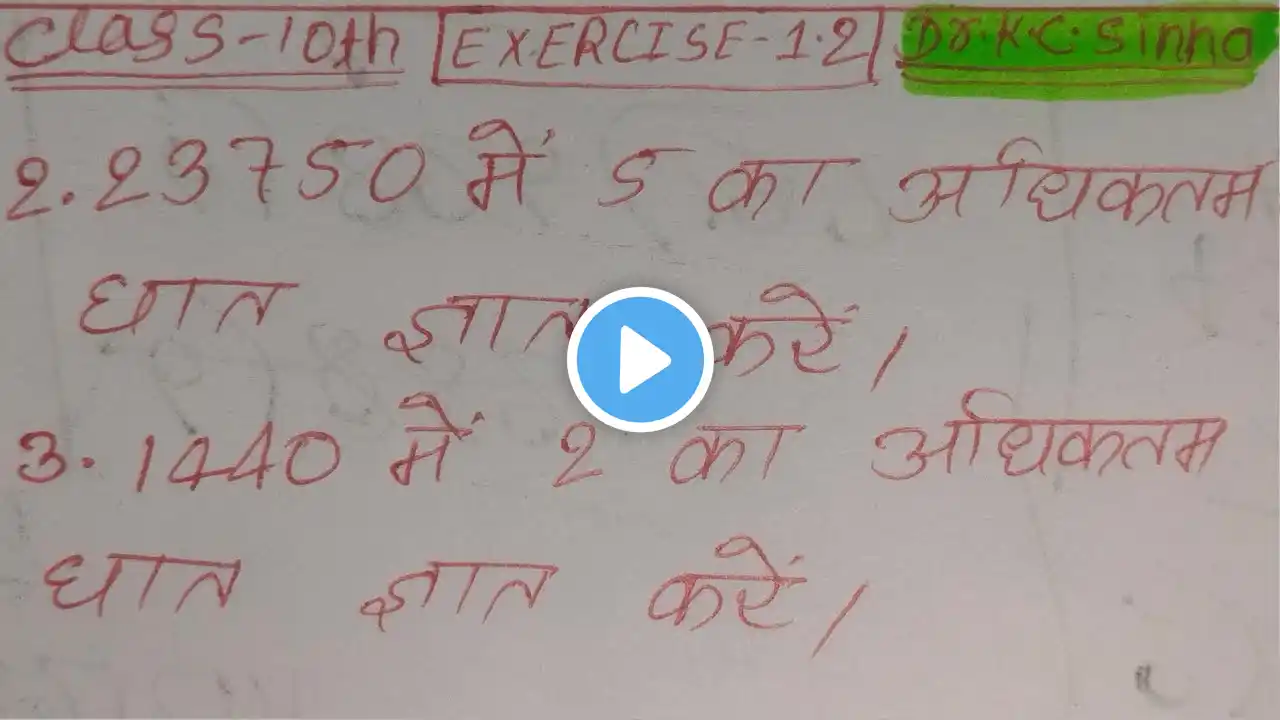 Class-10th EXERCISE-1.2 Dr.K.C.Sinha
2. 23750 में 5 का अधिकतम
घात ज्ञात करें।
3. 1440 में 2 का अधिकतम
घात ज्ञात करें।